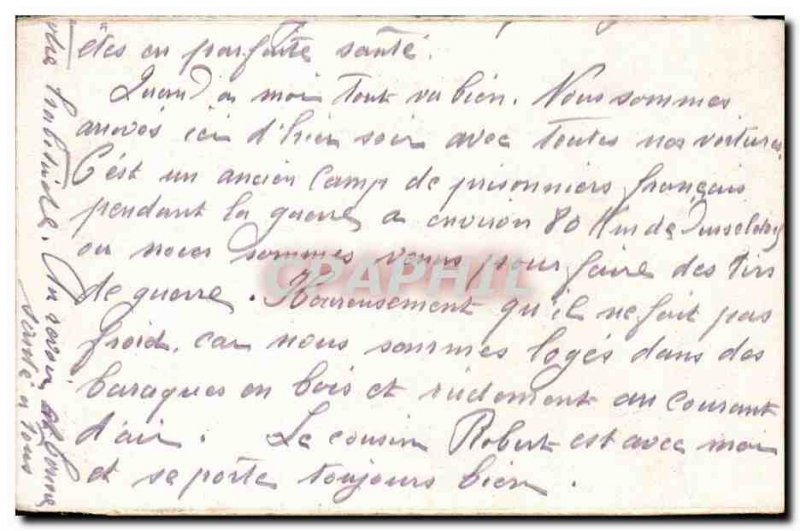 êtes en parfaite santé.
Quand a moi tout va bien. Nous sommes
arrivés ici d'hier soir avec toutes nos voitures.
C'est un ancien Camp de prisonniers français
pendant la guerre a environ 80 Km de Dusseldorf
ou nous sommes venus pour faire des tirs
de guerre. Heureusement qu'il ne fait pas
froid, car nous sommes logés dans des
baraques en bois et rudement au courant
d'air. Le cousin Robert est avec moi
et se porte toujours bien.
votre habitude. Au revoir et bonne
santé a tous
CPAPHIL